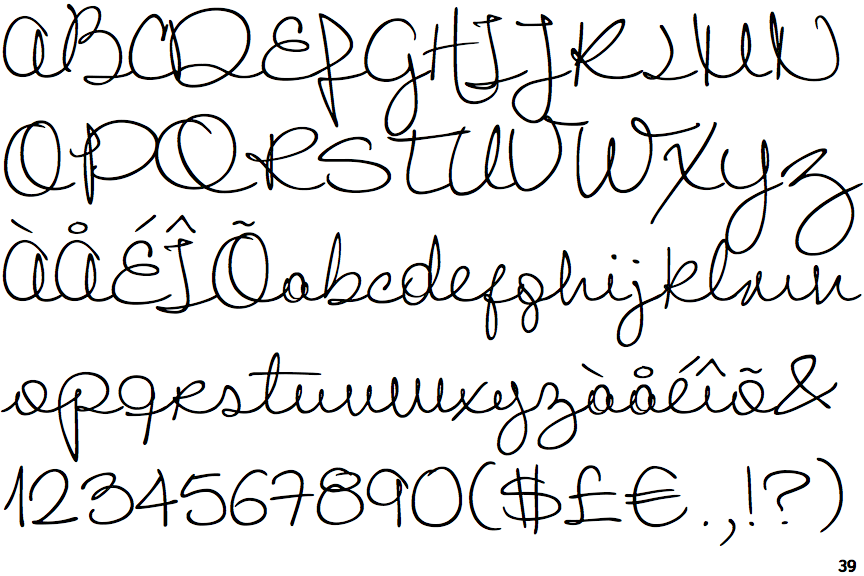 ABCDEFGHIJKLMN
OPQRSTUVWXYZ
ÀÅÉÎÕabcdefghijklmn
opqrstuvwxyzàåéîõ&
1234567890($£€.,!?)
39